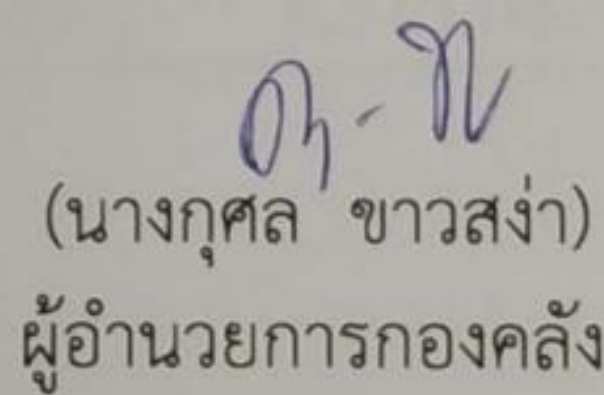 (นางกุศล ขาวสง่า)
ผู้อำนวยการกองคลัง